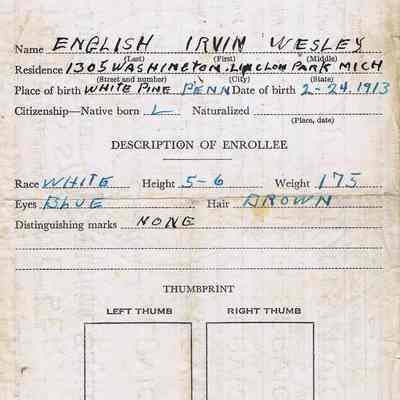 Name ENGLISH IRVIN WESLEY
(Last) (First) (Middle)
Residence 1305 WASHINGTON. LINCLON PARK MICH
(Street and number) (City) (State)
Place of birth WHITE PINE PENN Date of birth 2-24, 1913
Citizenship—Native born Naturalized
(Place, date)
DESCRIPTION OF ENROLLEE
Race WHITE Height 5-6 Weight 175
Eyes BLUE Hair BROWN
Distinguishing marks NONE
THUMBPRINT
LEFT THUMB RIGHT THUMB